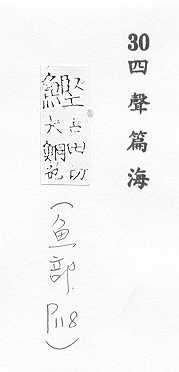 30 四聲篇海
鰹
古田切
大鮦
(魚部 P118)